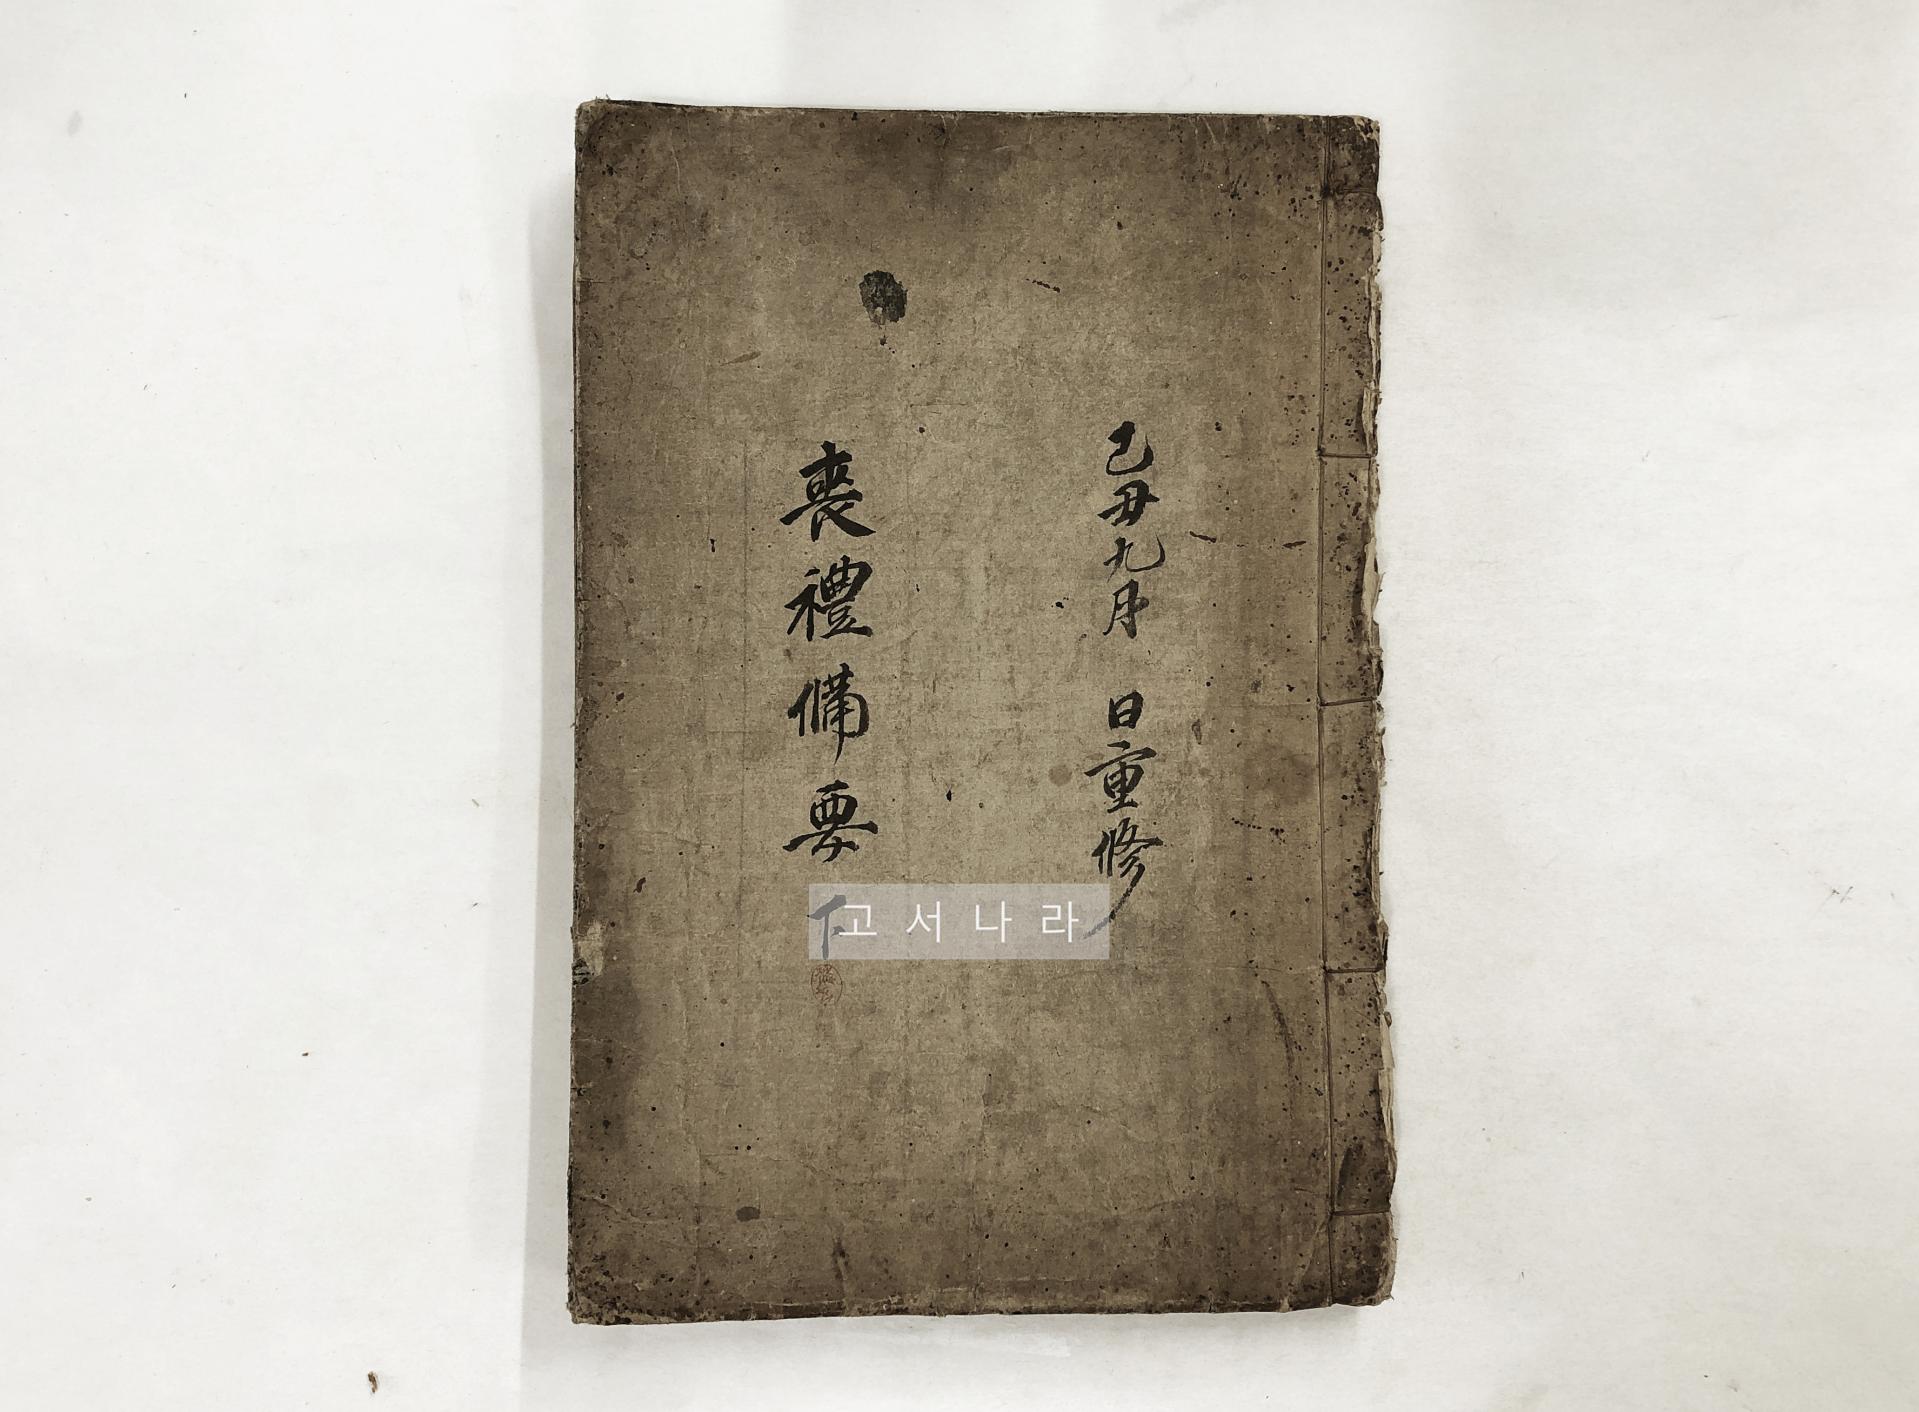 己丑九月 日重修
喪禮備要
下
고서나라